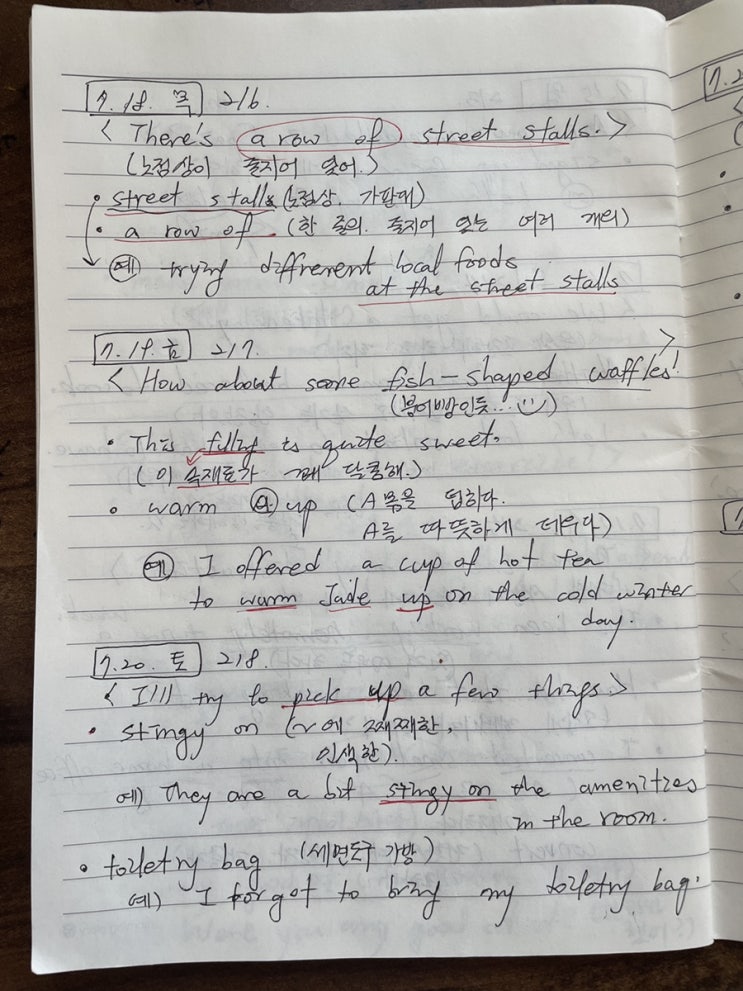 7. 18. 목 216.
< There's a row of street stalls. >
(노점상이 줄지어 있어.)
• street stalls (노점상. 가판대)
• a row of. (한 줄의. 줄지어 있는 여러 개의)
예 trying diffrerent local foods
at the street stalls
7. 19. 금 217.
< How about some fish-shaped waffles! >
(붕어빵인듯...)
• This filling is quite sweet.
(이 속재료가 꽤 달콤해.)
• warm A up (A 몸을 덥히다.
A를 따뜻하게 데우다)
예 I offered a cup of hot tea
to warm Jade up on the cold winter
day.
7. 20. 토 218.
< I'll try to pick up a few things. >
• stingy on (~에 쩨쩨한,
인색한).
예) They are a bit stingy on the amenities
in the room.
• toiletry bag (세면도구 가방)
예) I forgot to bring my toiletry bag.
7. 2